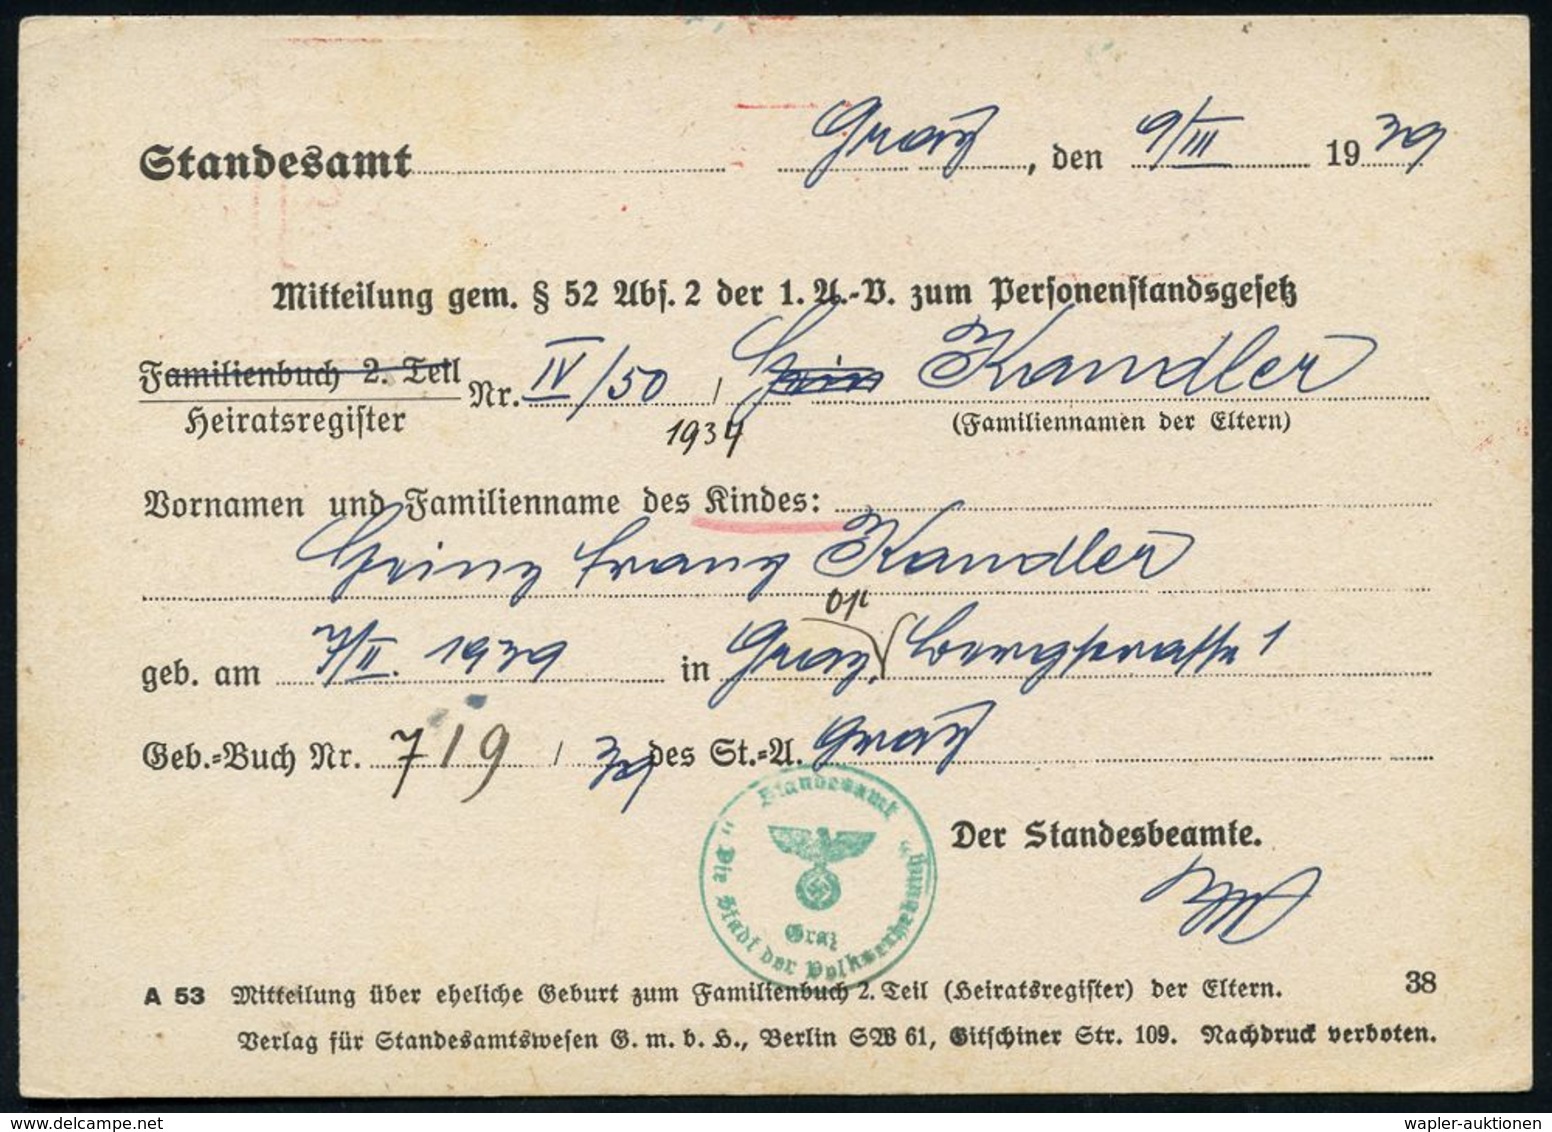 Standesamt Graz, den 9/III 1939
Mitteilung gem. § 52 Abs. 2 der 1. A.-V. zum Personenstandsgesetz
Familienbuch 2. Teil
Heiratsregister Nr. IV/50 / Kandler
1934 (Familiennamen der Eltern)
Vornamen und Familienname des Kindes:
Heinz Franz Kandler
geb. am 7/II. 1939 in Graz, Bergstrasse 1
Geb.-Buch Nr. 719 / 39 des St.-A. Graz
Standesamt
Graz
„Die Stadt der Volkserhebung“
Der Standesbeamte.
A 53 Mitteilung über eheliche Geburt zum Familienbuch 2. Teil (Heiratsregister) der Eltern. 38
Verlag für Standesamtswesen G. m. b. H., Berlin SW 61, Gitschiner Str. 109. Nachdruck verboten.
wapler-auktionen
www.delcampe.net